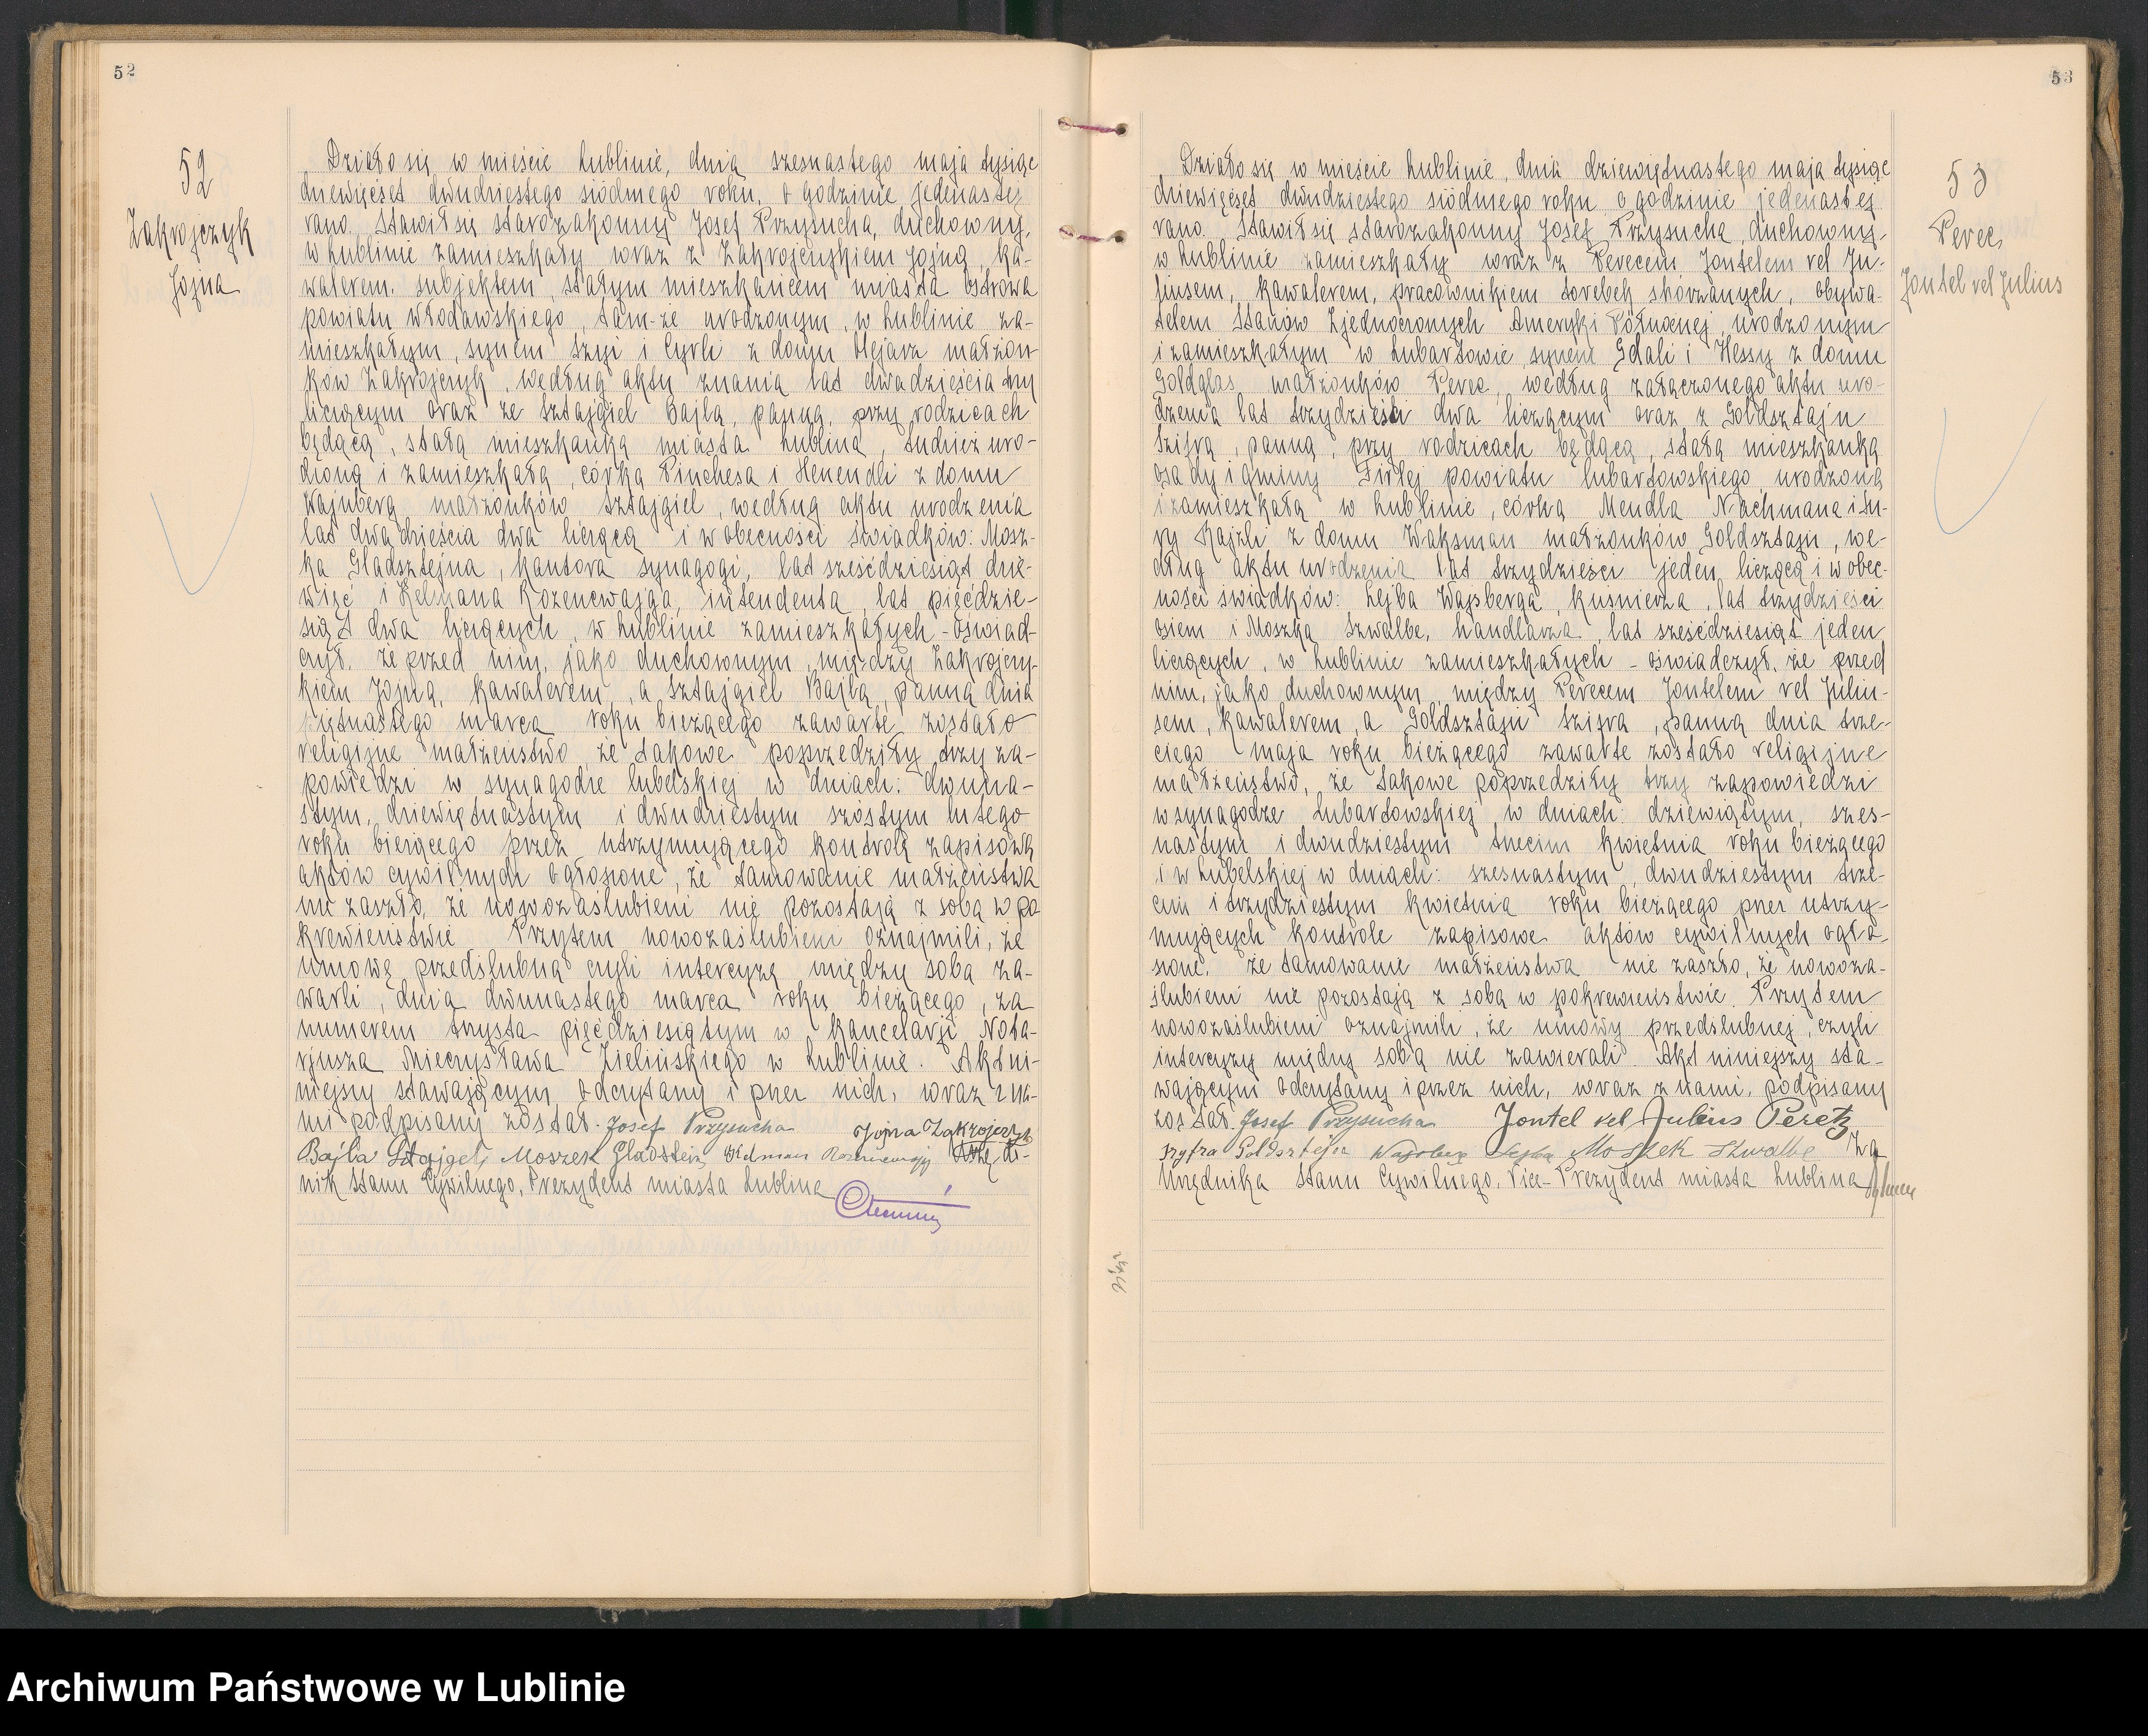 52
52
Zakrojczyk
Jojna
Działo się w mieście Lublinie, dnia szesnastego maja tysiąc
dziewięćset dwudziestego siódmego roku, o godzinie jedenastej
rano. Stawił się starozakonny Josef Przysucha, duchowny,
w Lublinie zamieszkały wraz z Zakrojczykiem Jojną, ka-
walerem, subjektem, stałym mieszkańcem miasta Ostrowa
powiatu Włodawskiego, tam-że urodzonym, w Lublinie za-
mieszkałym, synem Szyi i Cyrli z domu Olejarz małżon-
ków Zakrojczyk, według aktu znania lat dwadzieścia trzy
liczącym oraz ze Sztajgiel Bajlą, panną, przy rodzicach
będącą, stałą mieszkanką miasta Lublina, tudzież uro-
dzoną i zamieszkałą, córką Pinchesa i Henendli z domu
Wajnberg małżonków Sztajgiel, według aktu urodzenia
lat dwadzieścia dwa liczącą i w obecności świadków: Mosz-
ka Gladsztejna, kantora synagogi, lat sześćdziesiąt dzie-
więć i Kelmana Rozencwajga, intendenta, lat pięćdzie-
siąt dwa liczących, w Lublinie zamieszkałych - oświad-
czył, że przed nim, jako duchownym, między Zakrojczy-
kiem Jojną, kawalerem, a Sztajgiel Bajlą, panną dnia
piętnastego marca roku bieżącego zawarte zostało
religijne małżeństwo, że takowe poprzedziły trzy za-
powiedzi w synagodze lubelskiej w dniach: dwuna-
stym, dziewiętnastym i dwudziestym szóstym lutego
roku bieżącego przez utrzymującego kontrolę zapisową
aktów cywilnych ogłoszone, że tamowanie małżeństwa
nie zaszło, że nowozaślubieni nie pozostają z sobą w po-
krewieństwie Przytem nowozaślubieni oznajmili, że
umowę przedślubną czyli intercyzę między sobą za-
warli, dnia dwunastego marca roku bieżącego, za
numerem trzysta pięćdziesiątym w kancelarji Nota-
rjusza Mieczysława Zielińskiego w Lublinie. Akt ni-
niejszy stawającym odczytany i przez nich, wraz z na-
mi podpisany został. Josef Przysucha Jojna Zakrojczyk
Bajla Sztajgel Moszek Gladstein Kelman Rozencwajg Urzęd-
nik Stanu Cywilnego, Prezydent miasta Lublina
53
53
Perec
Jontel vel Julius
Działo się w mieście Lublinie, dnia dziewiętnastego maja tysiąc
dziewięćset dwudziestego siódmego roku o godzinie jedenastej
rano. Stawił się starozakonny Josef Przysucha, duchowny,
w Lublinie zamieszkały wraz z Perecem Jontelem vel Ju-
liusem, kawalerem, pracownikiem torebek skórzanych, obywa-
telem Stanów Zjednoczonych Ameryki Północnej, urodzonym
i zamieszkałym w Lubartowie, synem Gdali i Hessy z domu
Goldglas małżonków Perec, według załączonego aktu uro-
dzenia lat trzydzieści dwa liczącym oraz z Goldsztajn
Szifrą, panną, przy rodzicach będącą, stałą mieszkanką
osady i gminy Firlej powiatu lubartowskiego, urodzoną
i zamieszkałą w Lublinie, córką Mendla Nachmana i Su-
ry Rajzli z domu Waksman małżonków Goldsztajn, we-
dług aktu urodzenia lat trzydzieści jeden liczącą i w obec-
ności świadków: Lejba Wajsberga, kuśnierza, lat trzydzieści
osiem i Moszka Szwalbe, handlarza, lat sześćdziesiąt jeden
liczących, w Lublinie zamieszkałych - oświadczył, że przed
nim, jako duchownym, między Perecem Jontelem vel Juliu-
sem, kawalerem, a Goldsztajn Szifrą, panną dnia trze-
ciego maja roku bieżącego zawarte zostało religijne
małżeństwo, że takowe poprzedziły trzy zapowiedzi
w synagodze Lubartowskiej w dniach: dziewiątym, szes-
nastym i dwudziestym trzecim kwietnia roku bieżącego
i w Lubelskiej w dniach: szesnastym, dwudziestym trze-
cim i trzydziestym kwietnia roku bieżącego przez utrzy-
mujących kontrole zapisowe aktów cywilnych ogło-
szone, że tamowanie małżeństwa nie zaszło, że nowoza-
ślubieni nie pozostają z sobą w pokrewieństwie. Przytem
nowozaślubieni oznajmili, że umowy przedślubnej, czyli
intercyzy między sobą nie zawierali. Akt niniejszy sta-
wającym odczytany i przez nich, wraz z nami, podpisany
został. Josef Przysucha Jontel vel Julius Peretz
Szyfra Goldsztejn Wajsberg Lejba Moszek Szwalbe Za
Urzędnika Stanu Cywilnego, Vice-Prezydent miasta Lublina
Archiwum Państwowe w Lublinie